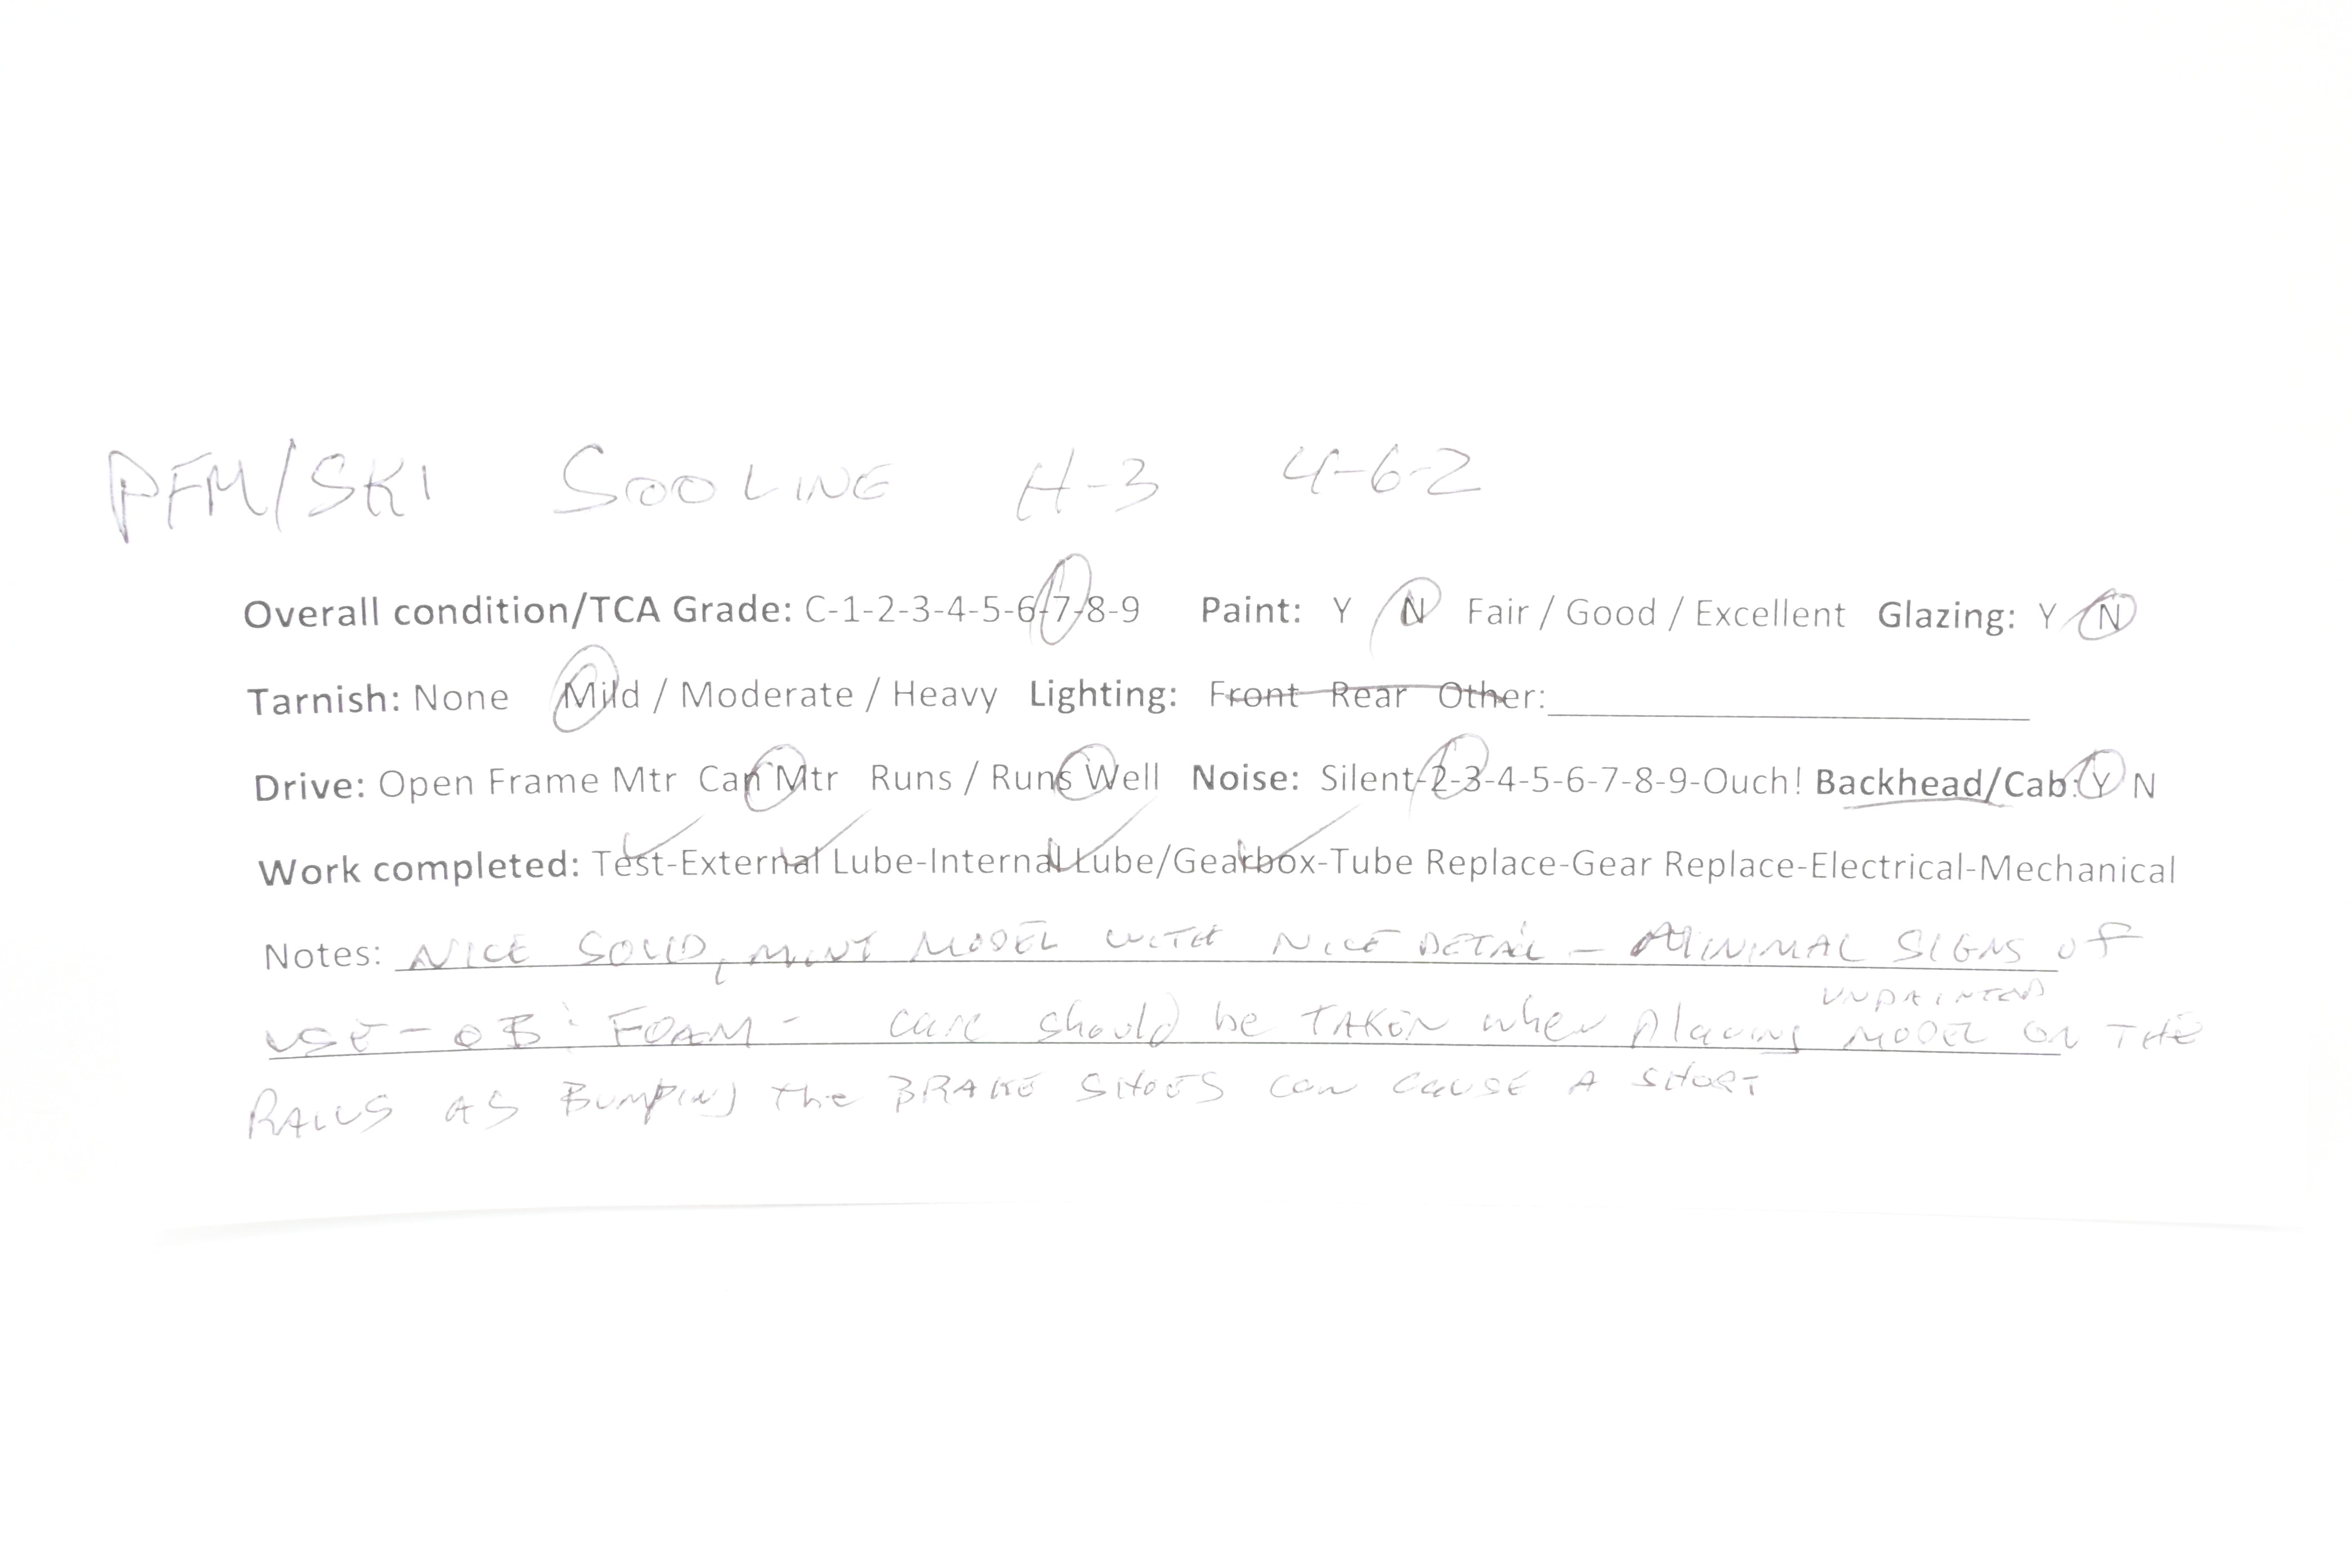 PFM/SKI SOO LINE H-3 4-6-2
Overall condition/TCA Grade: C-1-2-3-4-5-6-7-8-9 Paint: Y N Fair / Good / Excellent Glazing: Y N
Tarnish: None Mild / Moderate / Heavy Lighting: Front Rear Other:
Drive: Open Frame Mtr Can Mtr Runs / Runs Well Noise: Silent-2-3-4-5-6-7-8-9-Ouch! Backhead/Cab: Y N
Work completed: Test-External Lube-Internal Lube/Gearbox-Tube Replace-Gear Replace-Electrical-Mechanical
Notes: NICE SOLID, MINT MODEL WITH NICE DETAIL - MINIMAL SIGNS OF
UNPAINTED
USE - OB: FOAM - care should be TAKEN when placing MODEL ON THE
RAILS AS BUMPING the BRAKE SHOES can CAUSE A SHORT